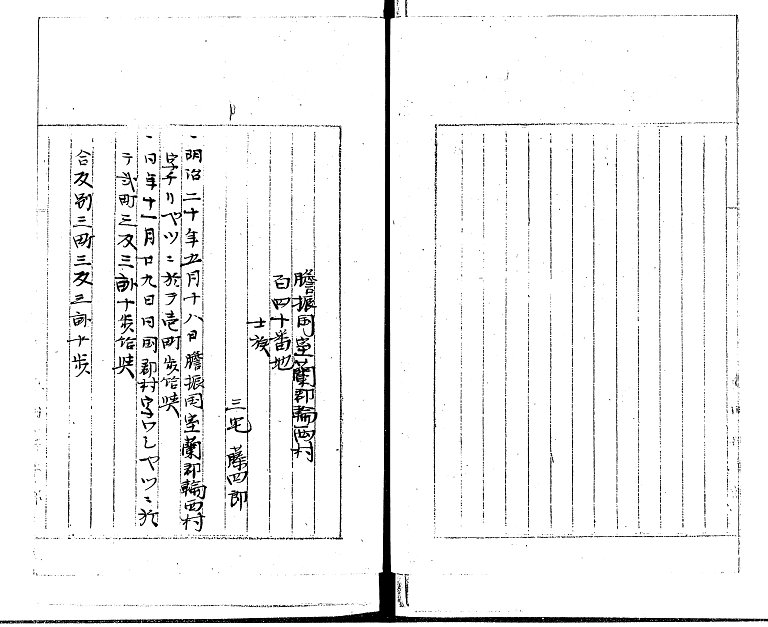 膽振国室蘭郡輪西村
百四十番地
士族
三宅 藤四郎
一明治二十年五月十八日膽振国室蘭郡輪西村
字チリヤツニ於テ壱町歩給与
一同年十一月廿九日同国郡村字ワシヤツニ於
テ弐町三反三畝十歩給与
合反別三町三反三畝十歩